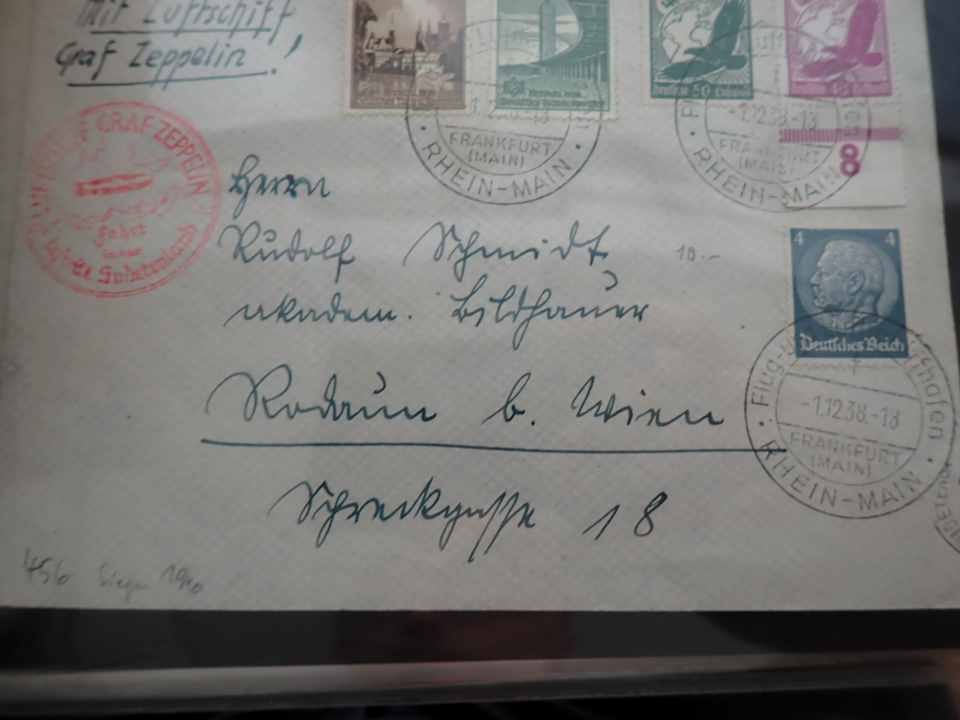 Mit Luftschiff
Graf Zeppelin!
GRAF ZEPPELIN
Fahrt
in das
Sudetenland
Deutsches Reich
50
-1.12.38.-18
FRANKFURT
(MAIN)
RHEIN-MAIN
-1.12.38.-18
FRANKFURT
(MAIN)
RHEIN-MAIN
8
Herrn
Rudolf Schmidt
10.--
akadem. Bildhauer
Rodaun b. Wien
Schreckgasse 18
4 4
Deutsches Reich
-1.12.38.-18
FRANKFURT
(MAIN)
RHEIN-MAIN
456